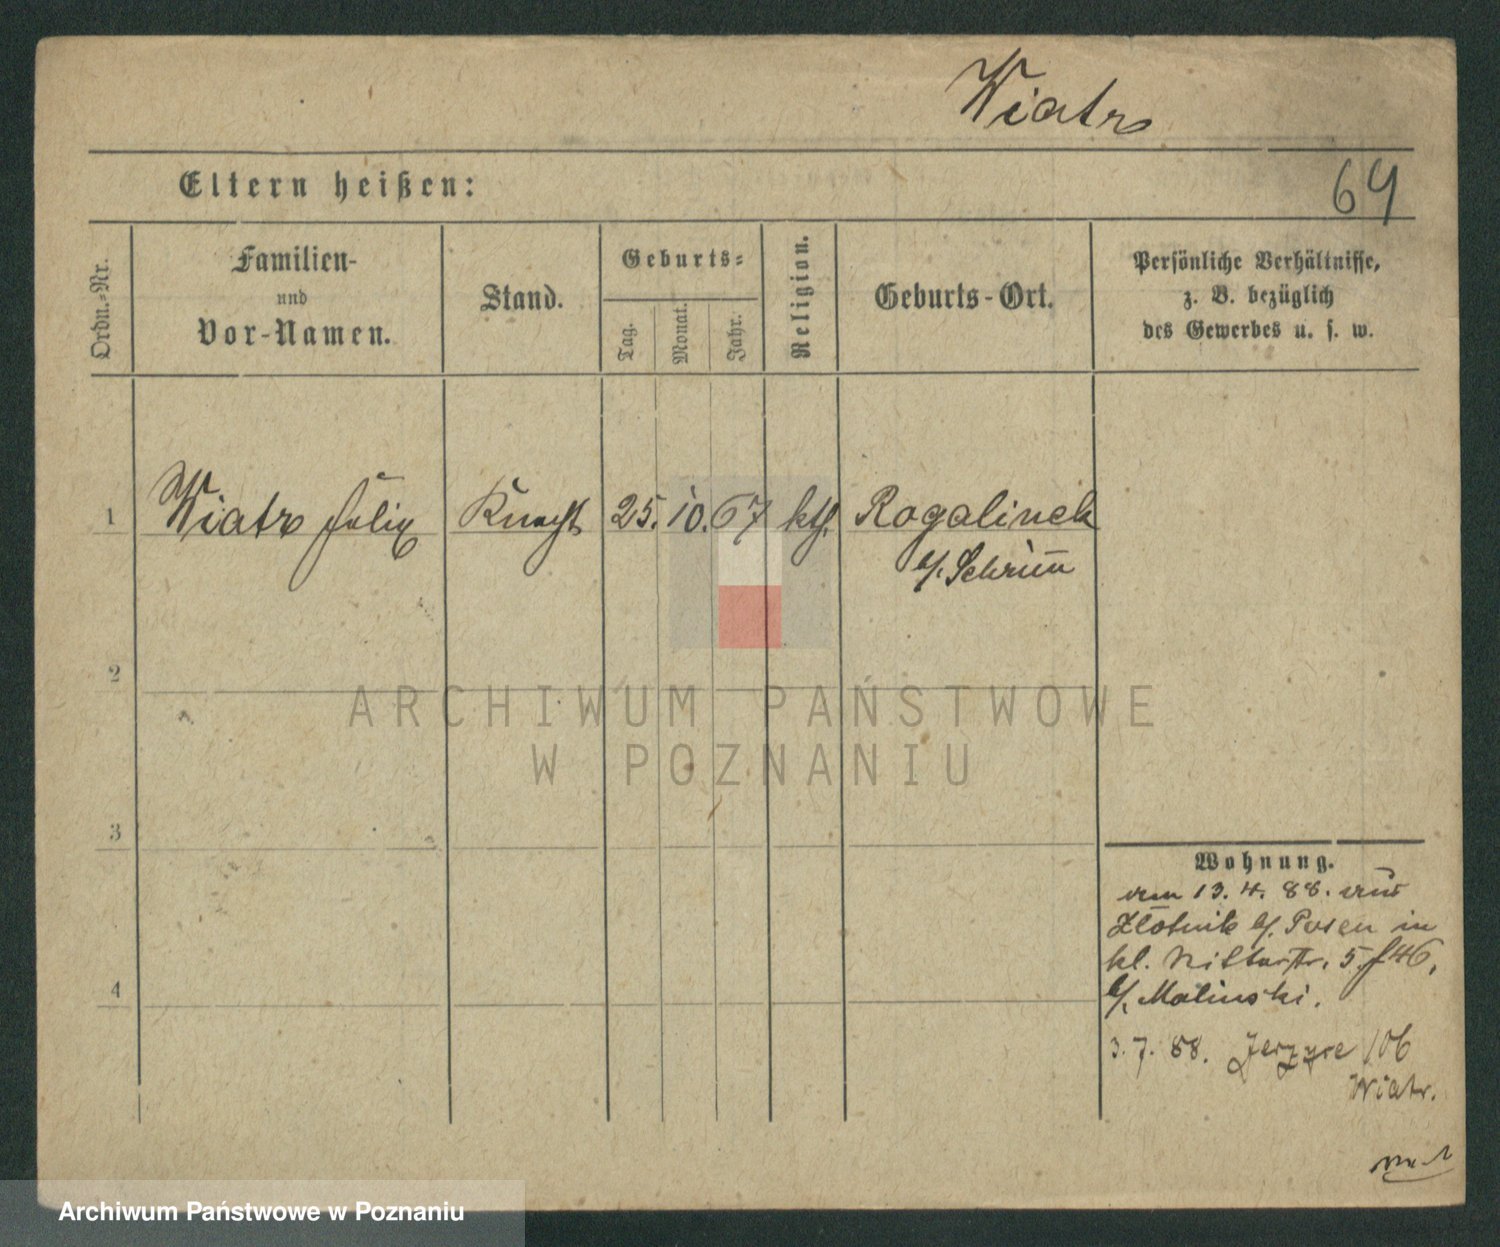 Wiatr
Eltern heißen:
64
Ordn.-Nr.
Familien-
und
Vor-Namen.
Stand.
Geburts-
Tag.
Monat.
Jahr.
Religion.
Geburts-Ort.
Persönliche Verhältnisse,
z. B. bezüglich
des Gewerbes u. s. w.
1 Wiatr Felix Knecht 25. 10. 67 kth. Rogalinek
b/. Schrim̅
2
3
4
ARCHIWUM PAŃSTWOWE
W POZNANIU
Wohnung.
13. 4. 88. aus
Zlotnik b/. Posen in
kl. Ritterstr. 5. 46,
b/. Malinski.
3. 7. 88. Jerzyce 106
Wiatr.
Archiwum Państwowe w Poznaniu